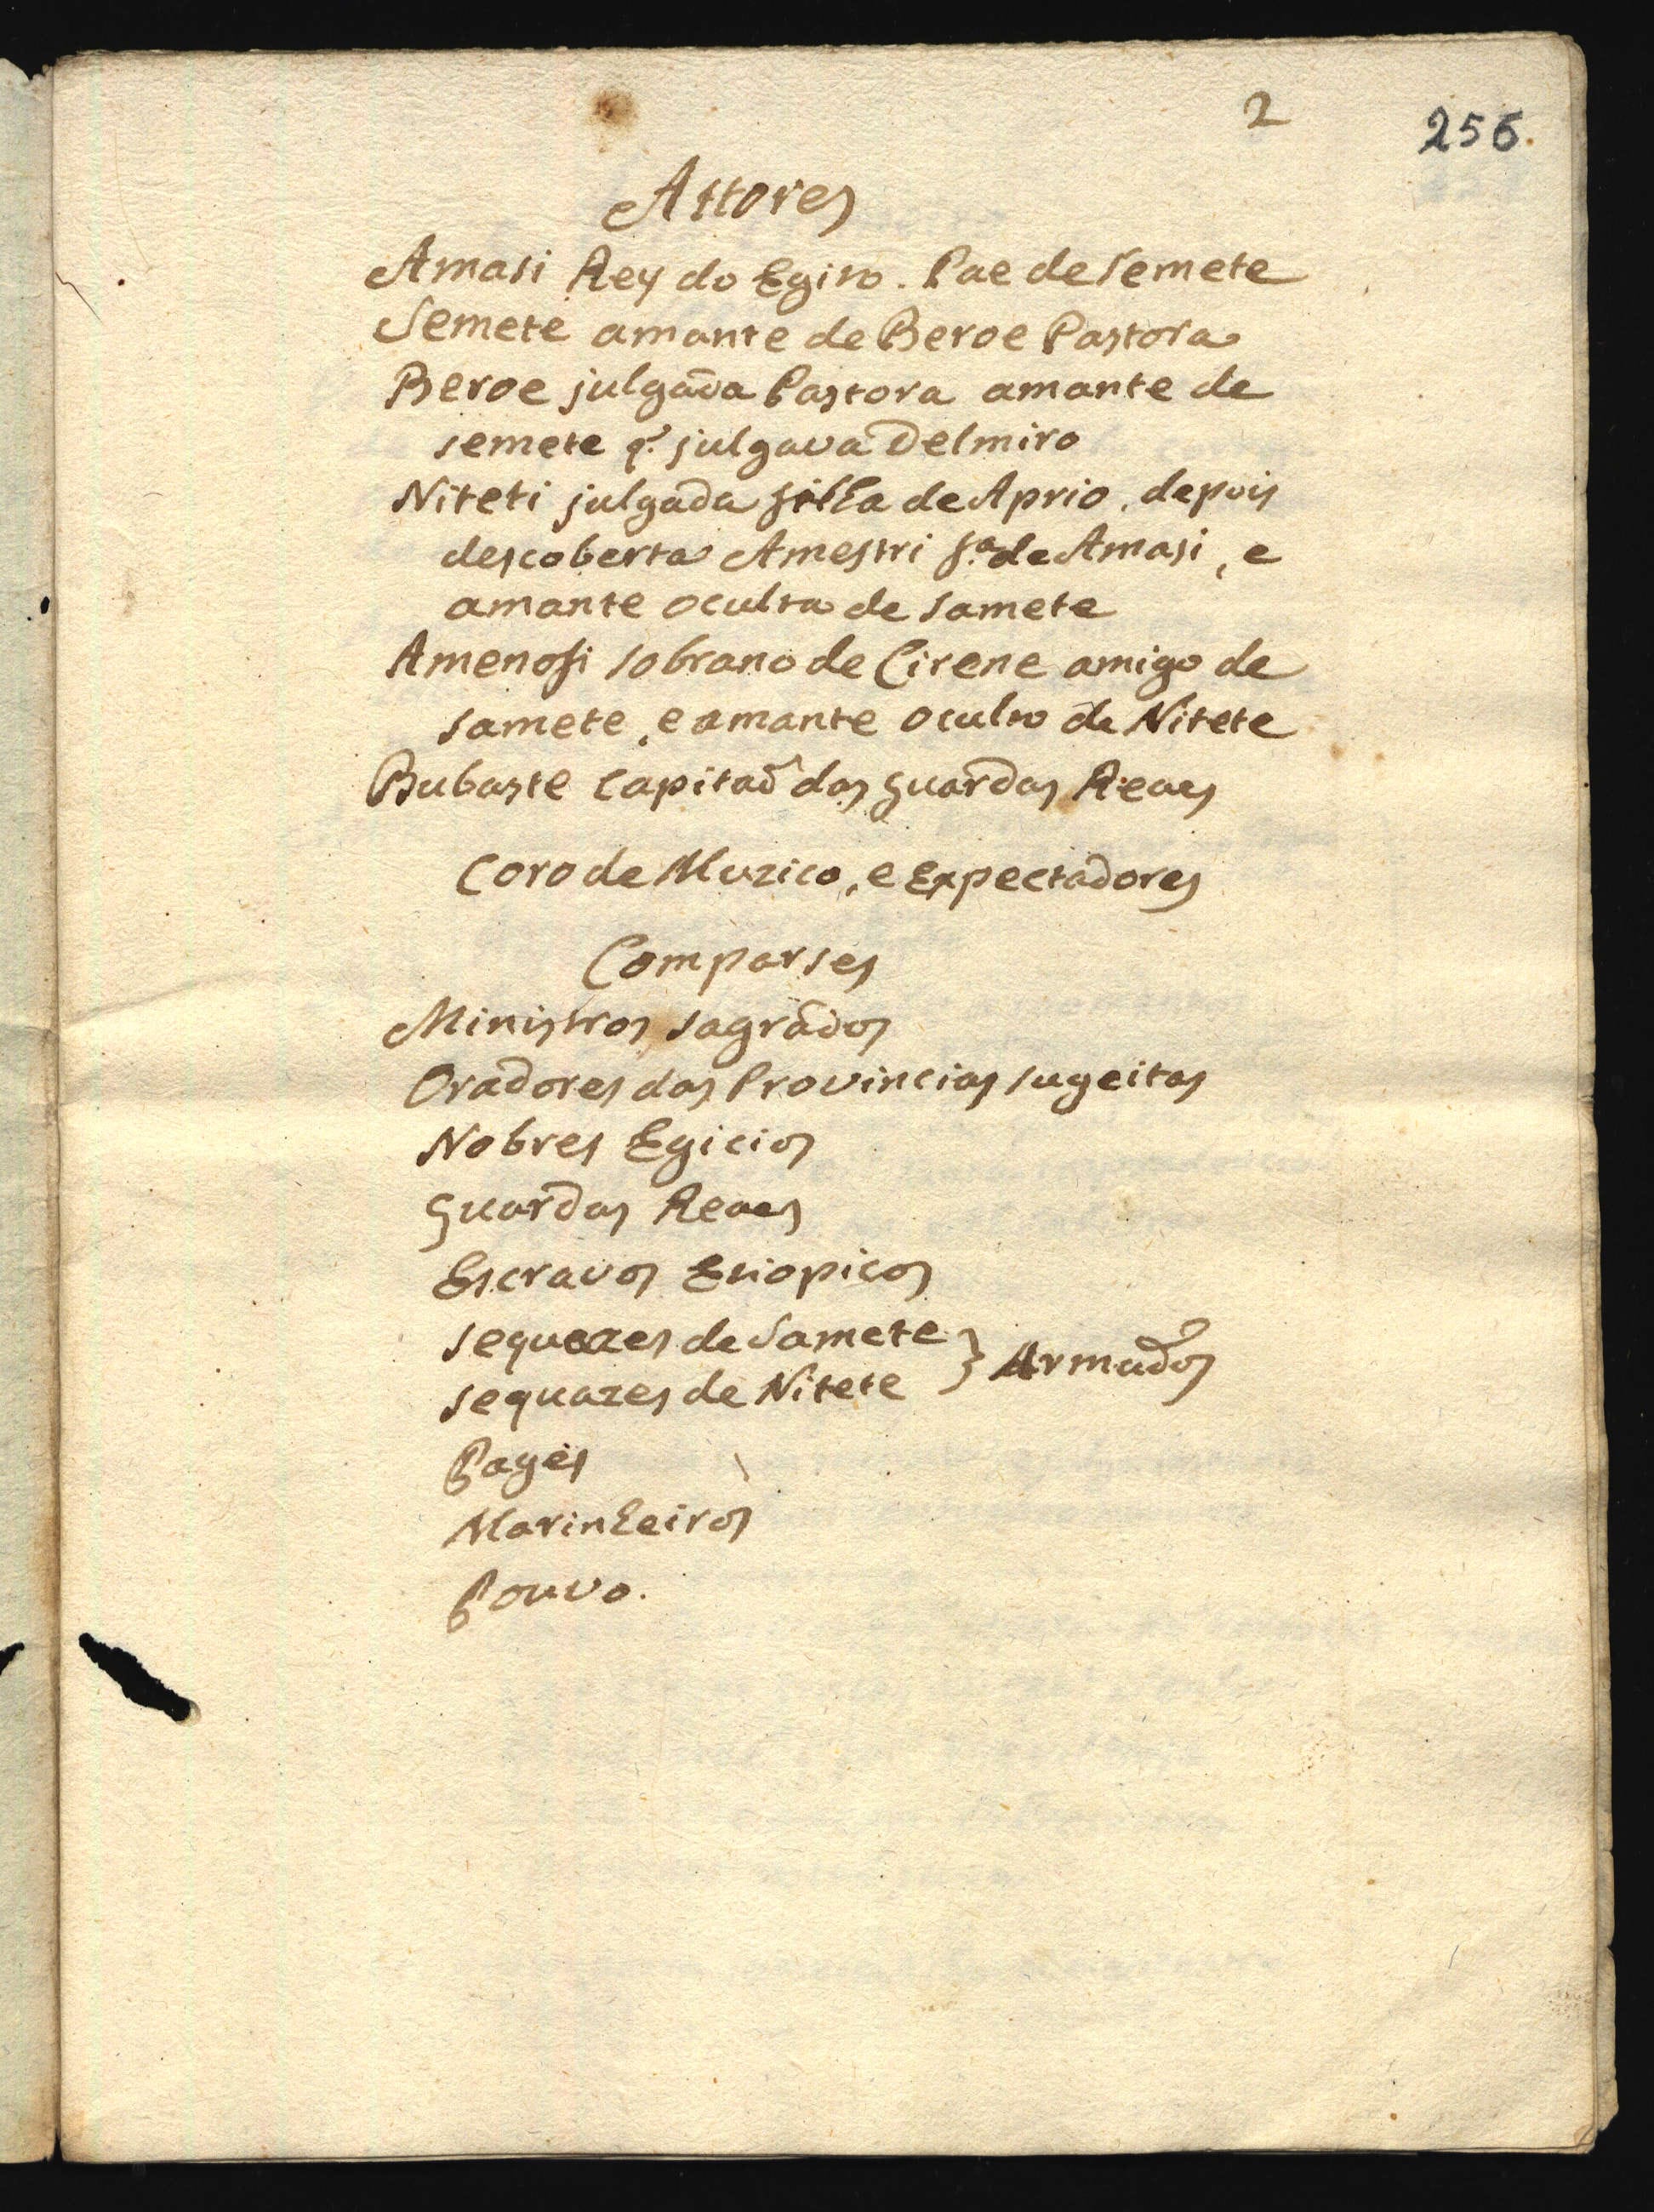 2
256.
Attores
Amasi Rey do Egito. Pae de Semete
Semete amante de Beroe Pastora
Beroe julgada Pastora amante de
semete q. julgava Delmiro
Niteti julgada filha de Aprio, depois
descoberta Amestri fa. de Amasi, e
amante oculta de Samete
Amenofi sobrano de Cirene amigo de
samete, e amante oculto de Nitete
Bubaste Capitaõ das guardas Reaes
Coro de Muzico, e Expectadores
Comparses
Ministros sagrados
Oradores das Provincias sugeitas
Nobres Egicios
Guardas Reaes
Escravos Etiopicos
sequazes de Samete } Armados
sequazes de Nitete
Pages
Marinheiros
Pouvo.